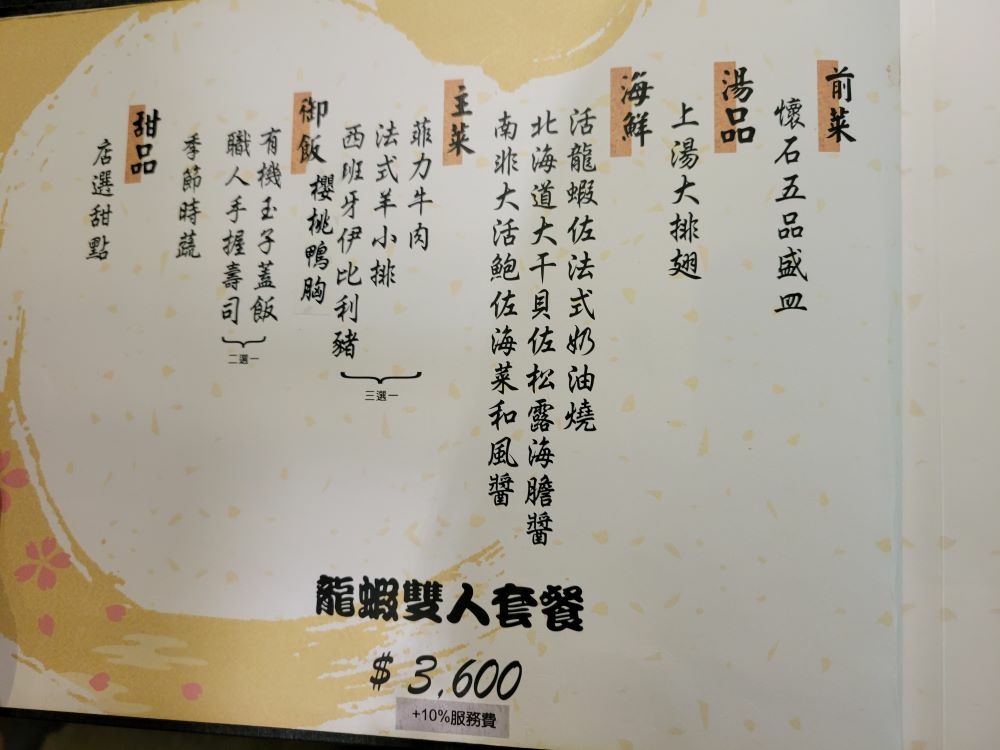 前菜
懷石五品盛皿
湯品
上湯大排翅
海鮮
活龍蝦佐法式奶油燒
北海道大干貝佐松露海膽醬
南非大活鮑佐海菜和風醬
主菜
菲力牛肉
法式羊小排
西班牙伊比利豬
櫻桃鴨胸
三選一
御飯
有機玉子蓋飯
職人手握壽司
二選一
季節時蔬
甜品
店選甜點
龍蝦雙人套餐
$ 3,600
+10%服務費